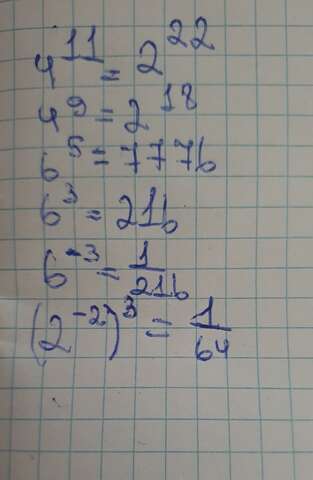 4^11 = 2^22
4^9 = 2^18
6^5 = 7776
6^3 = 216
6^-3 = 1/216
(2^-2)^3 = 1/64